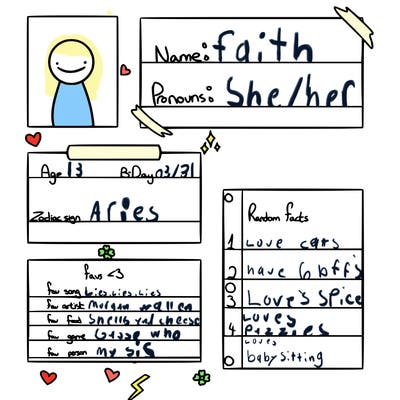 Name: faith
Pronouns: She/her
Age 13 B-Day 03/31
Zodiac sign Aries
favs <3
fav song Lies, Lies, Lies
fav artist Morgan wallen
fav food Shells and cheese
fav game Guess who
fav person my sis
Random facts
1 Love cats
2 have 6 bffs
3 Love's Spice
4 Loves Pizzies
Loves babysitting